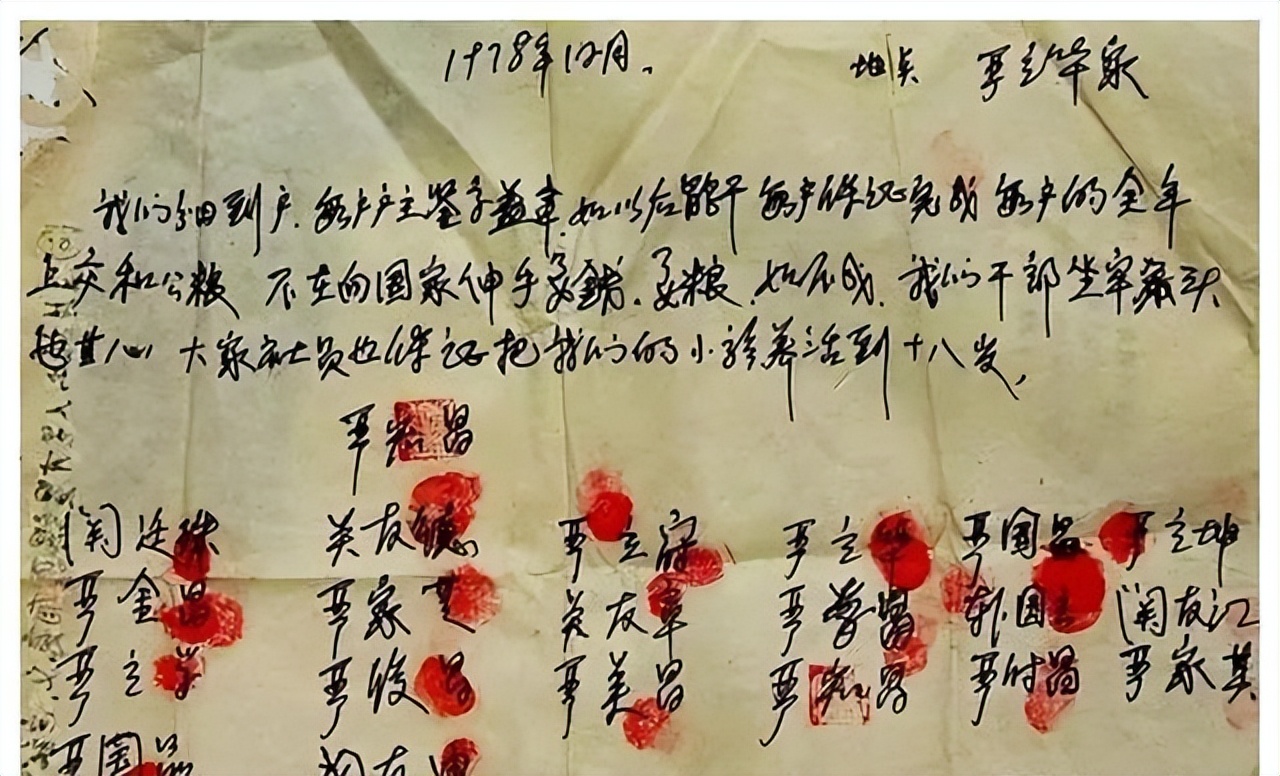 1978年12月. 地点 严立华家
我们分田到户.每户户主签字盖章.如以后能干每户保证完成每户的全年
上交和公粮 不在向国家伸手要钱.要粮.如不成.我们干部坐牢杀头
也甘心 大家社员也保证把我们的小孩养活到十八岁,
严宏昌
关廷珠 关友德 严立符 严立华 严国昌 严立坤
严金昌 严家芝 关友章 严学昌 韩国云 关友江
严立学 严俊昌 严美昌 严宏昌 严付昌 严家其
严国品 关友申